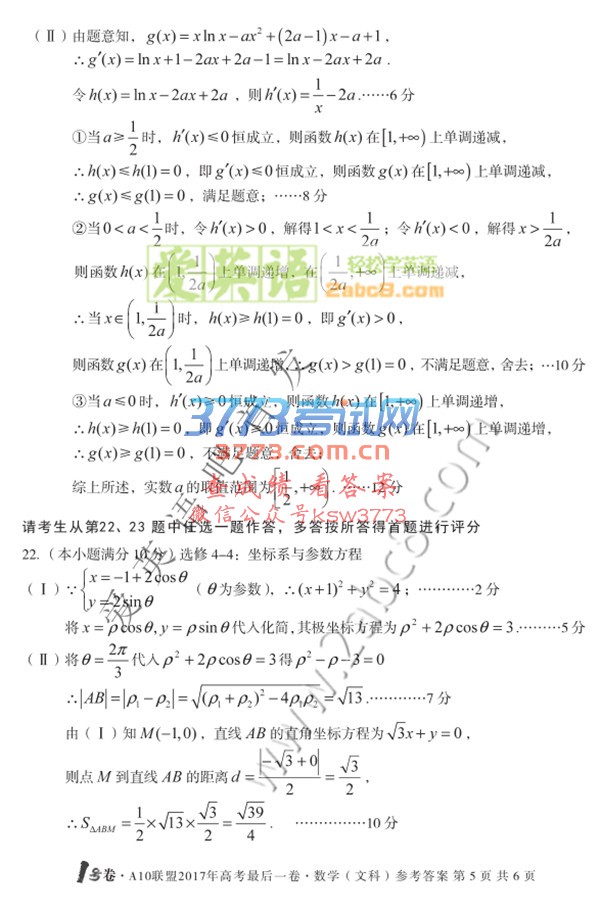 （Ⅱ）由题意知，g(x)=x ln x-ax²+(2a-1)x-a+1，
∴g′(x)=ln x+1-2ax+2a-1=ln x-2ax+2a．
令h(x)=ln x-2ax+2a，则h′(x)=1/x-2a.……6分
①当a≥1/2时，h′(x)≤0恒成立，则函数h(x)在[1,+∞)上单调递减，
∴h(x)≤h(1)=0，即g′(x)≤0恒成立，则函数g(x)在[1,+∞)上单调递减，
∴g(x)≤g(1)=0，满足题意；……8分
②当0<a<1/2时，令h′(x)>0，解得1<x<1/2a；令h′(x)<0，解得x>1/2a，
则函数h(x)在(1,1/2a)上单调递增，在(1/2a,+∞)上单调递减，
爱英语 轻松学英语 2abc8.com
∴当x∈(1,1/2a)时，h(x)≥h(1)=0，即g′(x)>0，
则函数g(x)在(1,1/2a)上单调递增，∴g(x)>g(1)=0，不满足题意，舍去；…10分
③当a≤0时，h′(x)≥0恒成立，则函数h(x)在[1,+∞)上单调递增，
3773考试网
∴h(x)≥h(1)=0，即g′(x)≥0恒成立，则函数g(x)在[1,+∞)上单调递增，
3773.com.cn
∴g(x)≥g(1)=0，不满足题意，舍去；
查成绩 看答案
综上所述，实数a的取值范围为[1/2,+∞)．……12分
微信公众号ksw3773
请考生从第22、23 题中任选一题作答，多答按所答得首题进行评分
22.（本小题满分10分）选修4-4：坐标系与参数方程
（Ⅰ）∵{x=-1+2cosθ y=2sinθ（θ为参数），∴(x+1)²+y²=4；…………2分
将x=ρcosθ,y=ρsinθ代入化简，其极坐标方程为ρ²+2ρcosθ=3.………5分
（Ⅱ）将θ=2π/3代入ρ²+2ρcosθ=3得ρ²-ρ-3=0
∴|AB|=|ρ₁-ρ₂|=√((ρ₁+ρ₂)²-4ρ₁ρ₂)=√13.…………7分
由（Ⅰ）知M(-1,0)，直线AB的直角坐标方程为√3x+y=0，
则点M到直线AB的距离d=|-√3+0|/2=√3/2，
∴S△ABM=1/2×√13×√3/2=√39/4．……………10分
1号卷·A10联盟2017年高考最后一卷·数学（文科）参考答案 第5页 共6页
www.2abc8.com